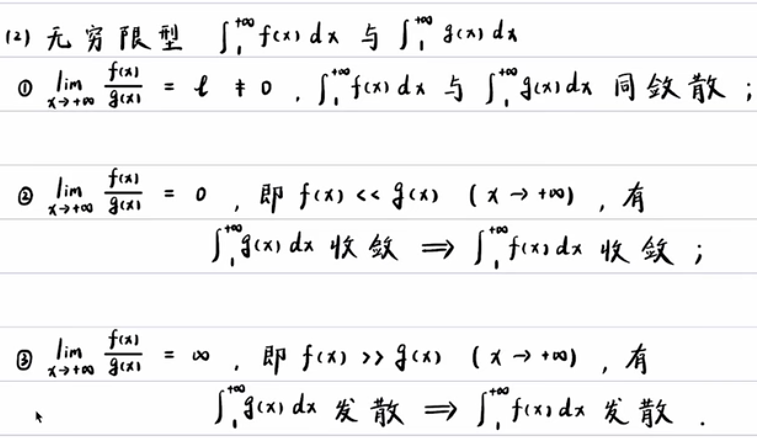 (2) 无穷限型 ∫₁^{+∞} f(x) dx 与 ∫₁^{+∞} g(x) dx
① lim_{x→+∞} f(x)/g(x) = ℓ ≠ 0 , ∫₁^{+∞} f(x) dx 与 ∫₁^{+∞} g(x) dx 同敛散 ;
② lim_{x→+∞} f(x)/g(x) = 0 , 即 f(x) << g(x) (x → +∞) , 有
∫₁^{+∞} g(x) dx 收敛 ⟹ ∫₁^{+∞} f(x) dx 收敛 ;
③ lim_{x→+∞} f(x)/g(x) = ∞ , 即 f(x) >> g(x) (x → +∞) , 有
∫₁^{+∞} g(x) dx 发散 ⟹ ∫₁^{+∞} f(x) dx 发散 .